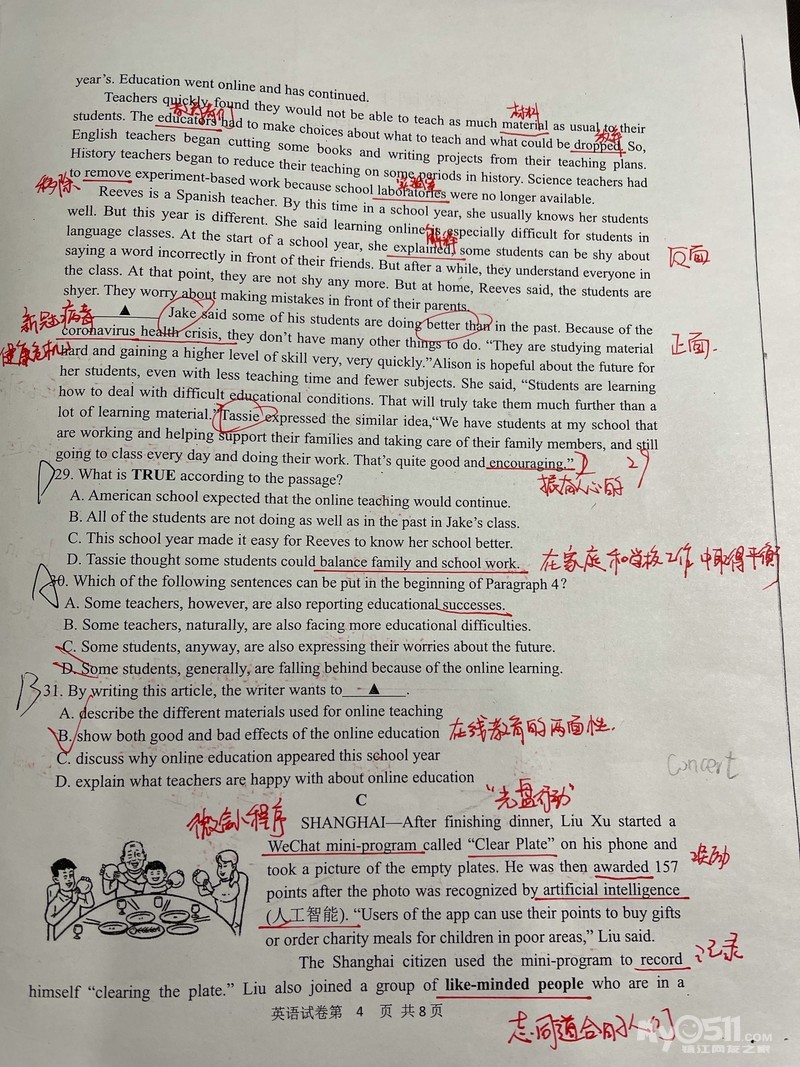 year's. Education went online and has continued.
Teachers quickly found they would not be able to teach as much material as usual to their
students. The educators had to make choices about what to teach and what could be dropped. So,
English teachers began cutting some books and writing projects from their teaching plans.
History teachers began to reduce their teaching on some periods in history. Science teachers had
to remove experiment-based work because school laboratories were no longer available.
Reeves is a Spanish teacher. By this time in a school year, she usually knows her students
well. But this year is different. She said learning online is especially difficult for students in
language classes. At the start of a school year, she explained, some students can be shy about
saying a word incorrectly in front of their friends. But after a while, they understand everyone in
the class. At that point, they are not shy any more. But at home, Reeves said, the students are
shyer. They worry about making mistakes in front of their parents.
▲ Jake said some of his students are doing better than in the past. Because of the
coronavirus health crisis, they don't have many other things to do. “They are studying material
hard and gaining a higher level of skill very, very quickly.”Alison is hopeful about the future for
her students, even with less teaching time and fewer subjects. She said, “Students are learning
how to deal with difficult educational conditions. That will truly take them much further than a
lot of learning material.”Tassie expressed the similar idea,“We have students at my school that
are working and helping support their families and taking care of their family members, and still
going to class every day and doing their work. That's quite good and encouraging.”
材料
移除
实验室
解释
页面
新冠病毒
健康危机
正面.
D 29
振奋人心的
D
29. What is TRUE according to the passage?
A. American school expected that the online teaching would continue.
B. All of the students are not doing as well as in the past in Jake's class.
C. This school year made it easy for Reeves to know her school better.
D. Tassie thought some students could balance family and school work.
在家庭和学校工作中取得平衡
A
30. Which of the following sentences can be put in the beginning of Paragraph 4?
A. Some teachers, however, are also reporting educational successes.
B. Some teachers, naturally, are also facing more educational difficulties.
C. Some students, anyway, are also expressing their worries about the future.
D. Some students, generally, are falling behind because of the online learning.
B
31. By writing this article, the writer wants to ▲ .
A. describe the different materials used for online teaching
B. show both good and bad effects of the online education
在线教育的两面性.
C. discuss why online education appeared this school year
D. explain what teachers are happy with about online education
Concert
C
“光盘行动”
微信小程序
SHANGHAI—After finishing dinner, Liu Xu started a
WeChat mini-program called “Clear Plate” on his phone and
took a picture of the empty plates. He was then awarded 157
奖励
points after the photo was recognized by artificial intelligence
(人工智能). “Users of the app can use their points to buy gifts
or order charity meals for children in poor areas,” Liu said.
The Shanghai citizen used the mini-program to record
记录
himself “clearing the plate.” Liu also joined a group of like-minded people who are in a
英语试卷第 4 页 共 8 页
志同道合的人们
my0511.com
镇江网友之家